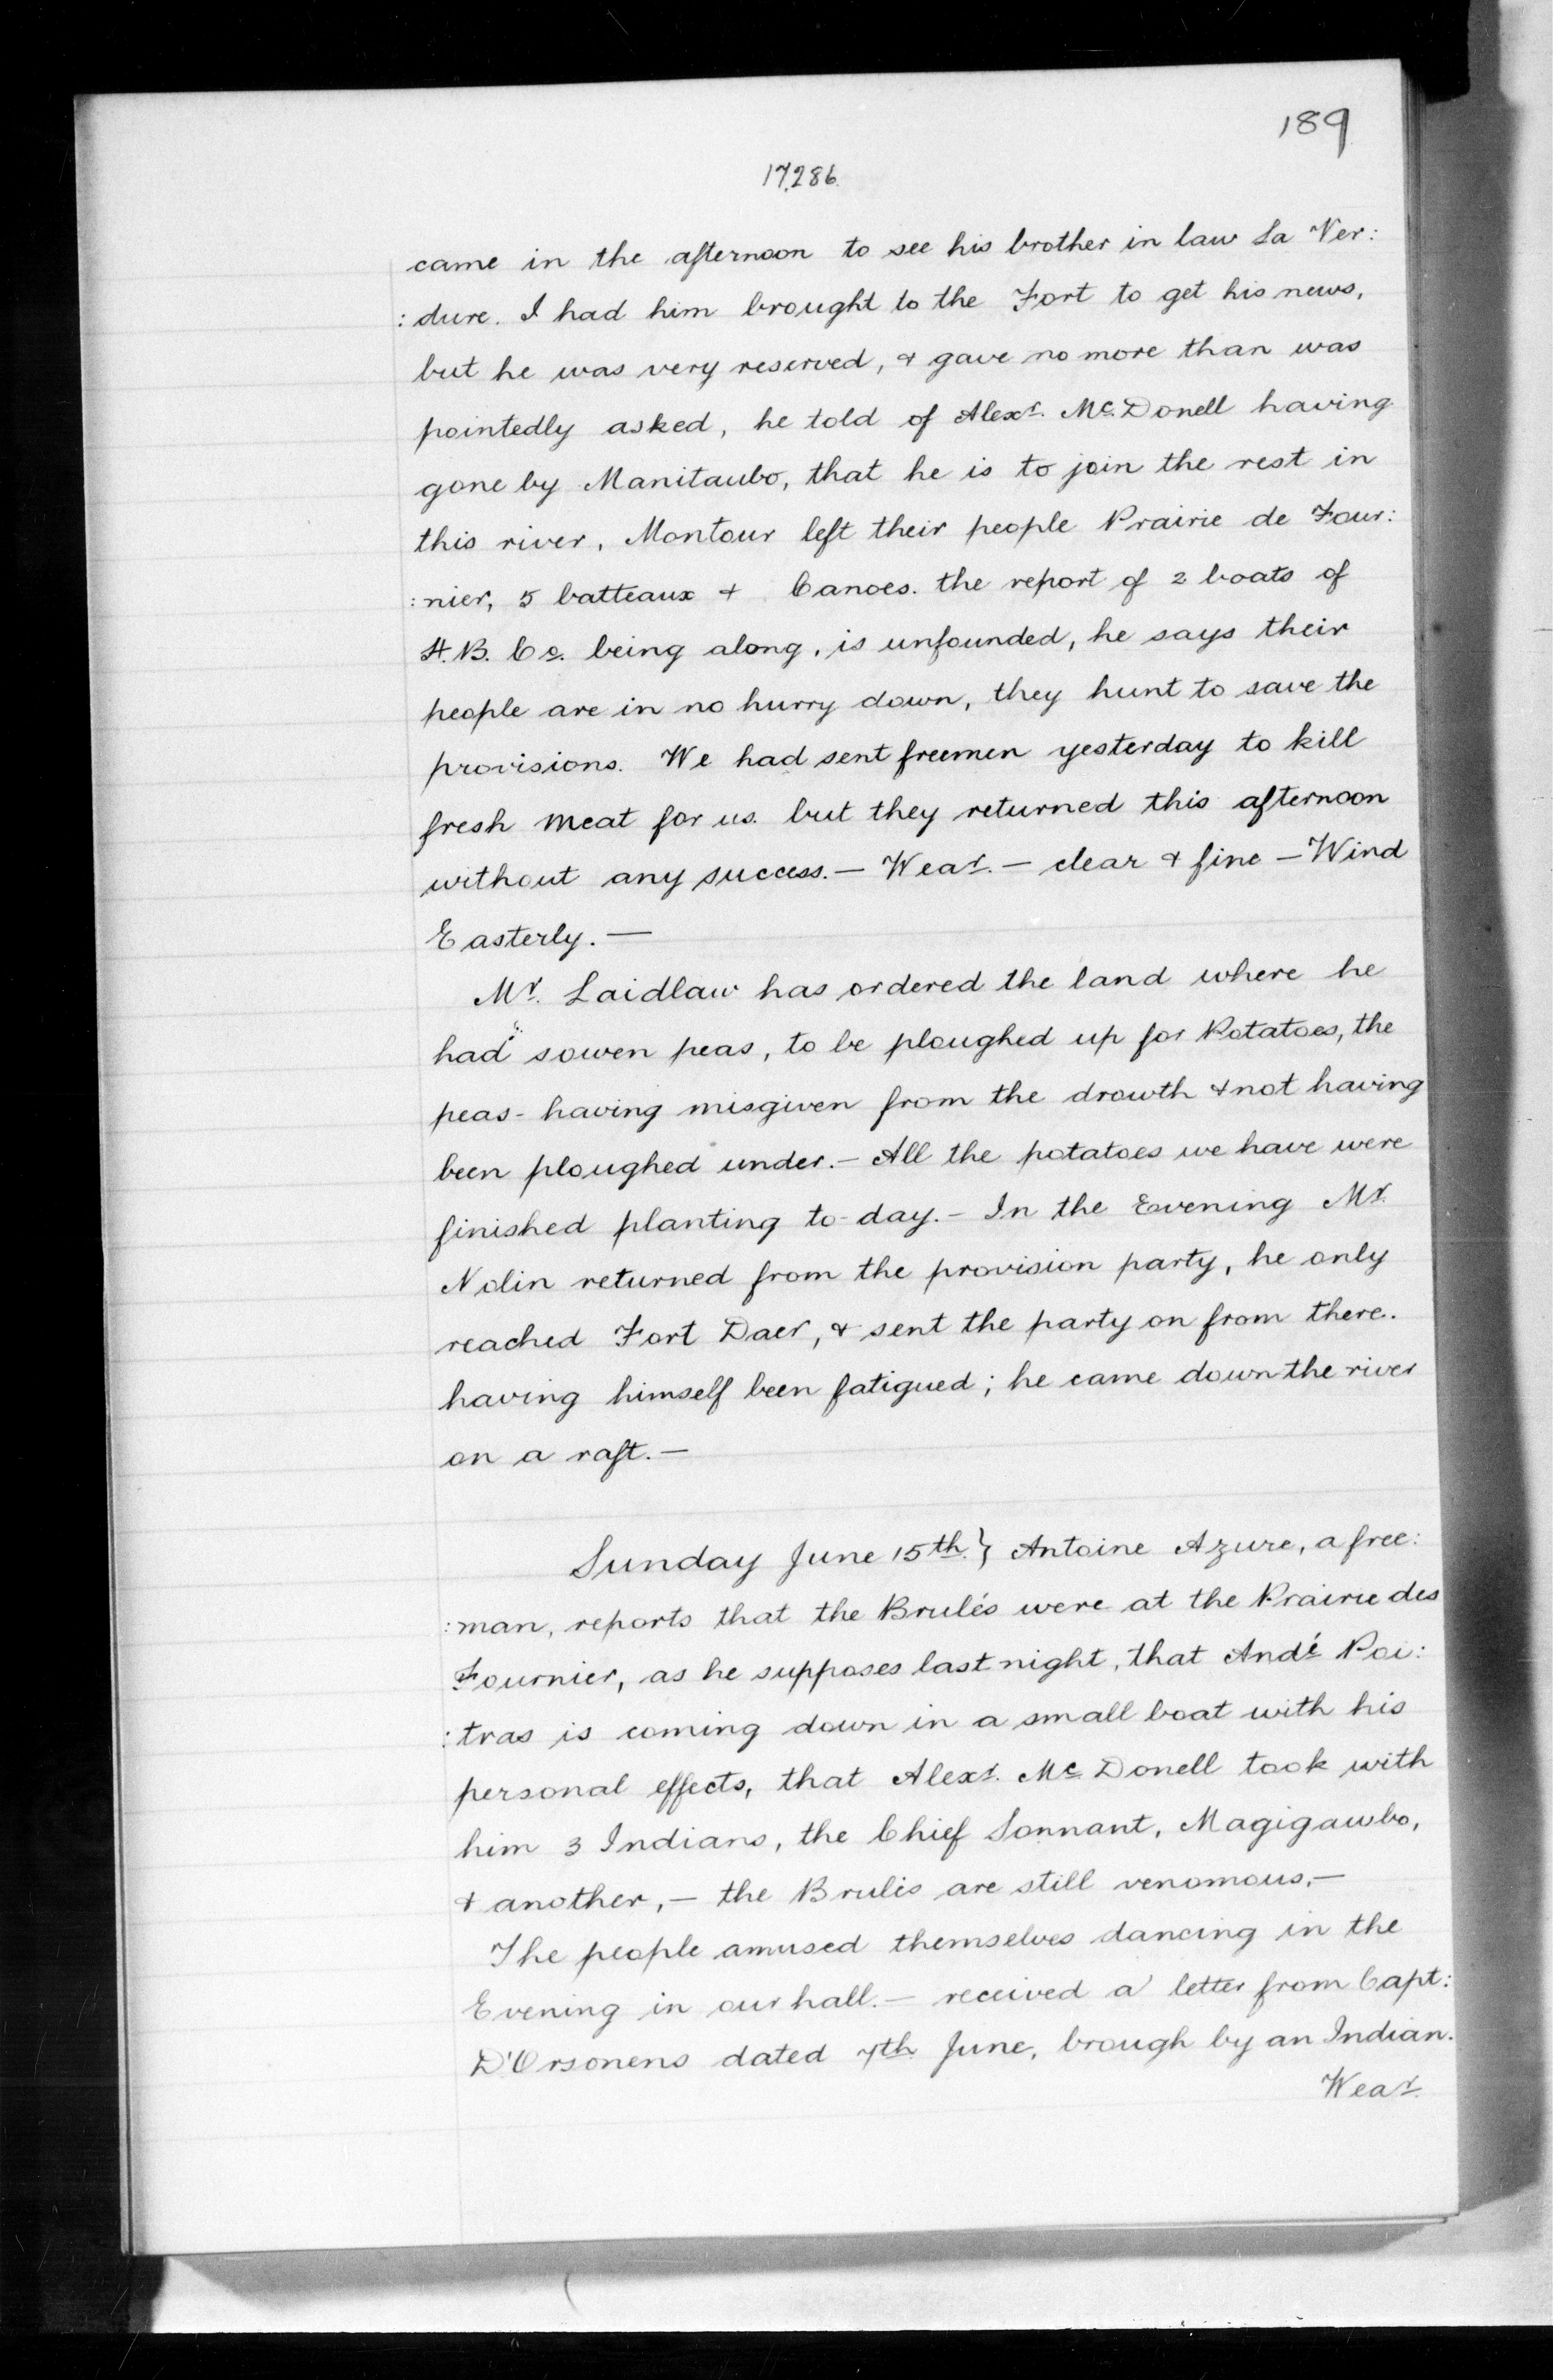 189
17,286.
came in the afternoon to see his brother in law La Ver:
: dure. I had him brought to the Fort to get his news,
but he was very reserved, & gave no more than was
pointedly asked, he told of Alexr. Mc. Donell having
gone by Manitaubo, that he is to join the rest in
this river, Montour left their people Prairie de Four:
: nier, 5 batteaux & Canoes. the report of 2 boats of
H. B. Co. being along, is unfounded, he says their
people are in no hurry down, they hunt to save the
provisions. We had sent freemen yesterday to kill
fresh meat for us. but they returned this afternoon
without any success. — Wear. — clear & fine — Wind
Easterly. —
Mr. Laidlaw has ordered the land where he
had sowen peas, to be ploughed up for Potatoes, the
peas - having misgiven from the drowth & not having
been ploughed under. — All the potatoes we have were
finished planting to-day. — In the Evening Mr.
Nolin returned from the provision party, he only
reached Fort Daer, & sent the party on from there.
having himself been fatigued; he came down the river
on a raft. —
Sunday June 15th. } Antoine Azure, a free:
: man, reports that the Brulés were at the Prairie des
Fournier, as he supposes last night, that Andé Poi:
: tras is coming down in a small boat with his
personal effects, that Alexr. Mc Donell took with
him 3 Indians, the Chief Sonnant, Magigawbo,
& another, — the Brulés are still venomous. —
The people amused themselves dancing in the
Evening in our hall. — received a letter from Capt:
D'Orsonens dated 7th June, brough by an Indian.
Wear.